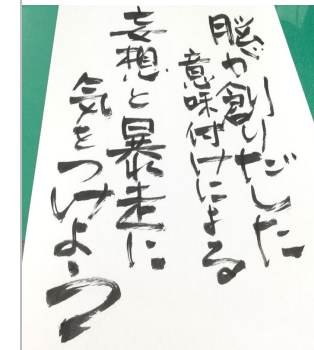 脳が創りだした
意味付けによる
妄想と暴走に
気をつけよう